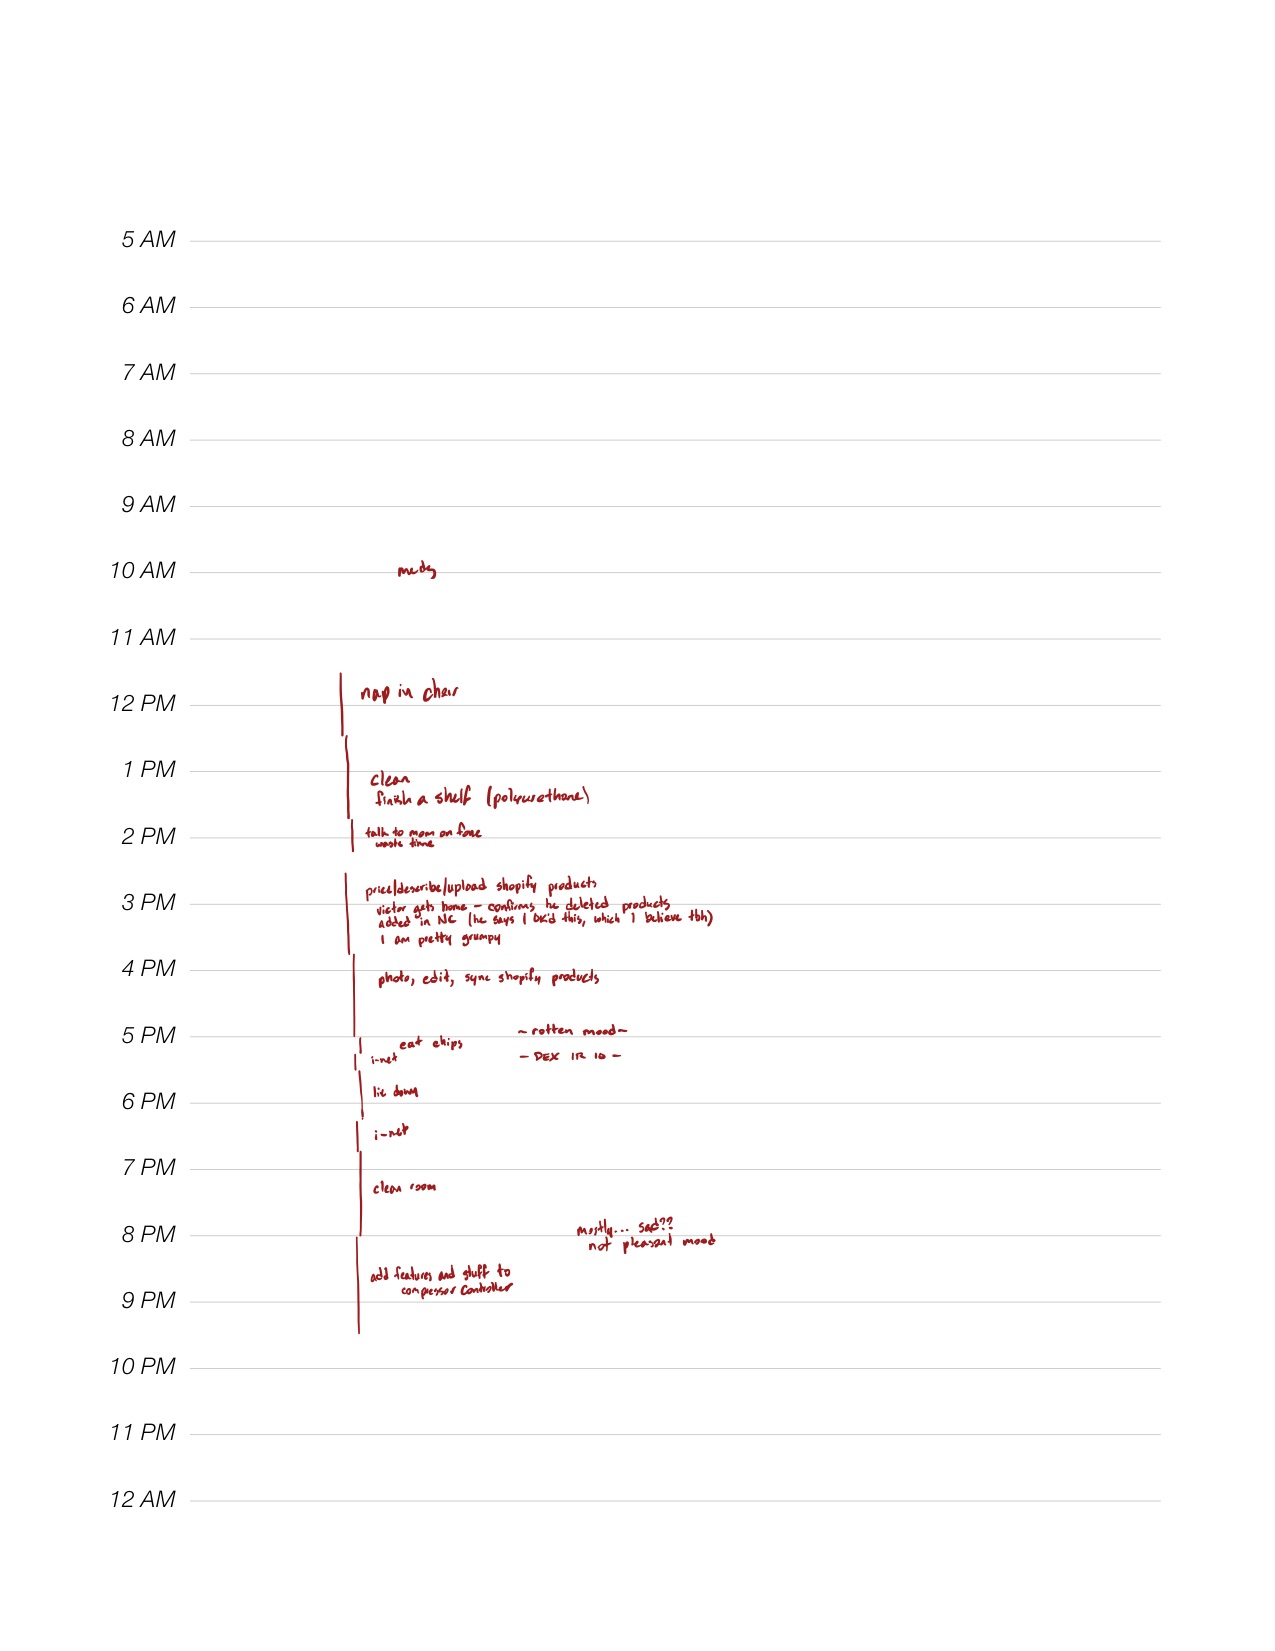 5 AM
6 AM
7 AM
8 AM
9 AM
10 AM meds
11 AM
nap in chair
12 PM
1 PM
clean
finish a shelf (polyurethane)
2 PM talk to mom on fone
waste time
price/describe/upload shopify products
3 PM victor gets home - confirms he deleted products
added in NC (he says I OK'd this, which I believe tbh)
I am pretty grumpy
4 PM photo, edit, sync shopify products
5 PM ~ rotten mood ~
eat chips
i-net - DEX IR 10 -
lie down
6 PM
i-net
7 PM
clean room
mostly... sad??
8 PM not pleasant mood
add features and stuff to
compressor controller
9 PM
10 PM
11 PM
12 AM